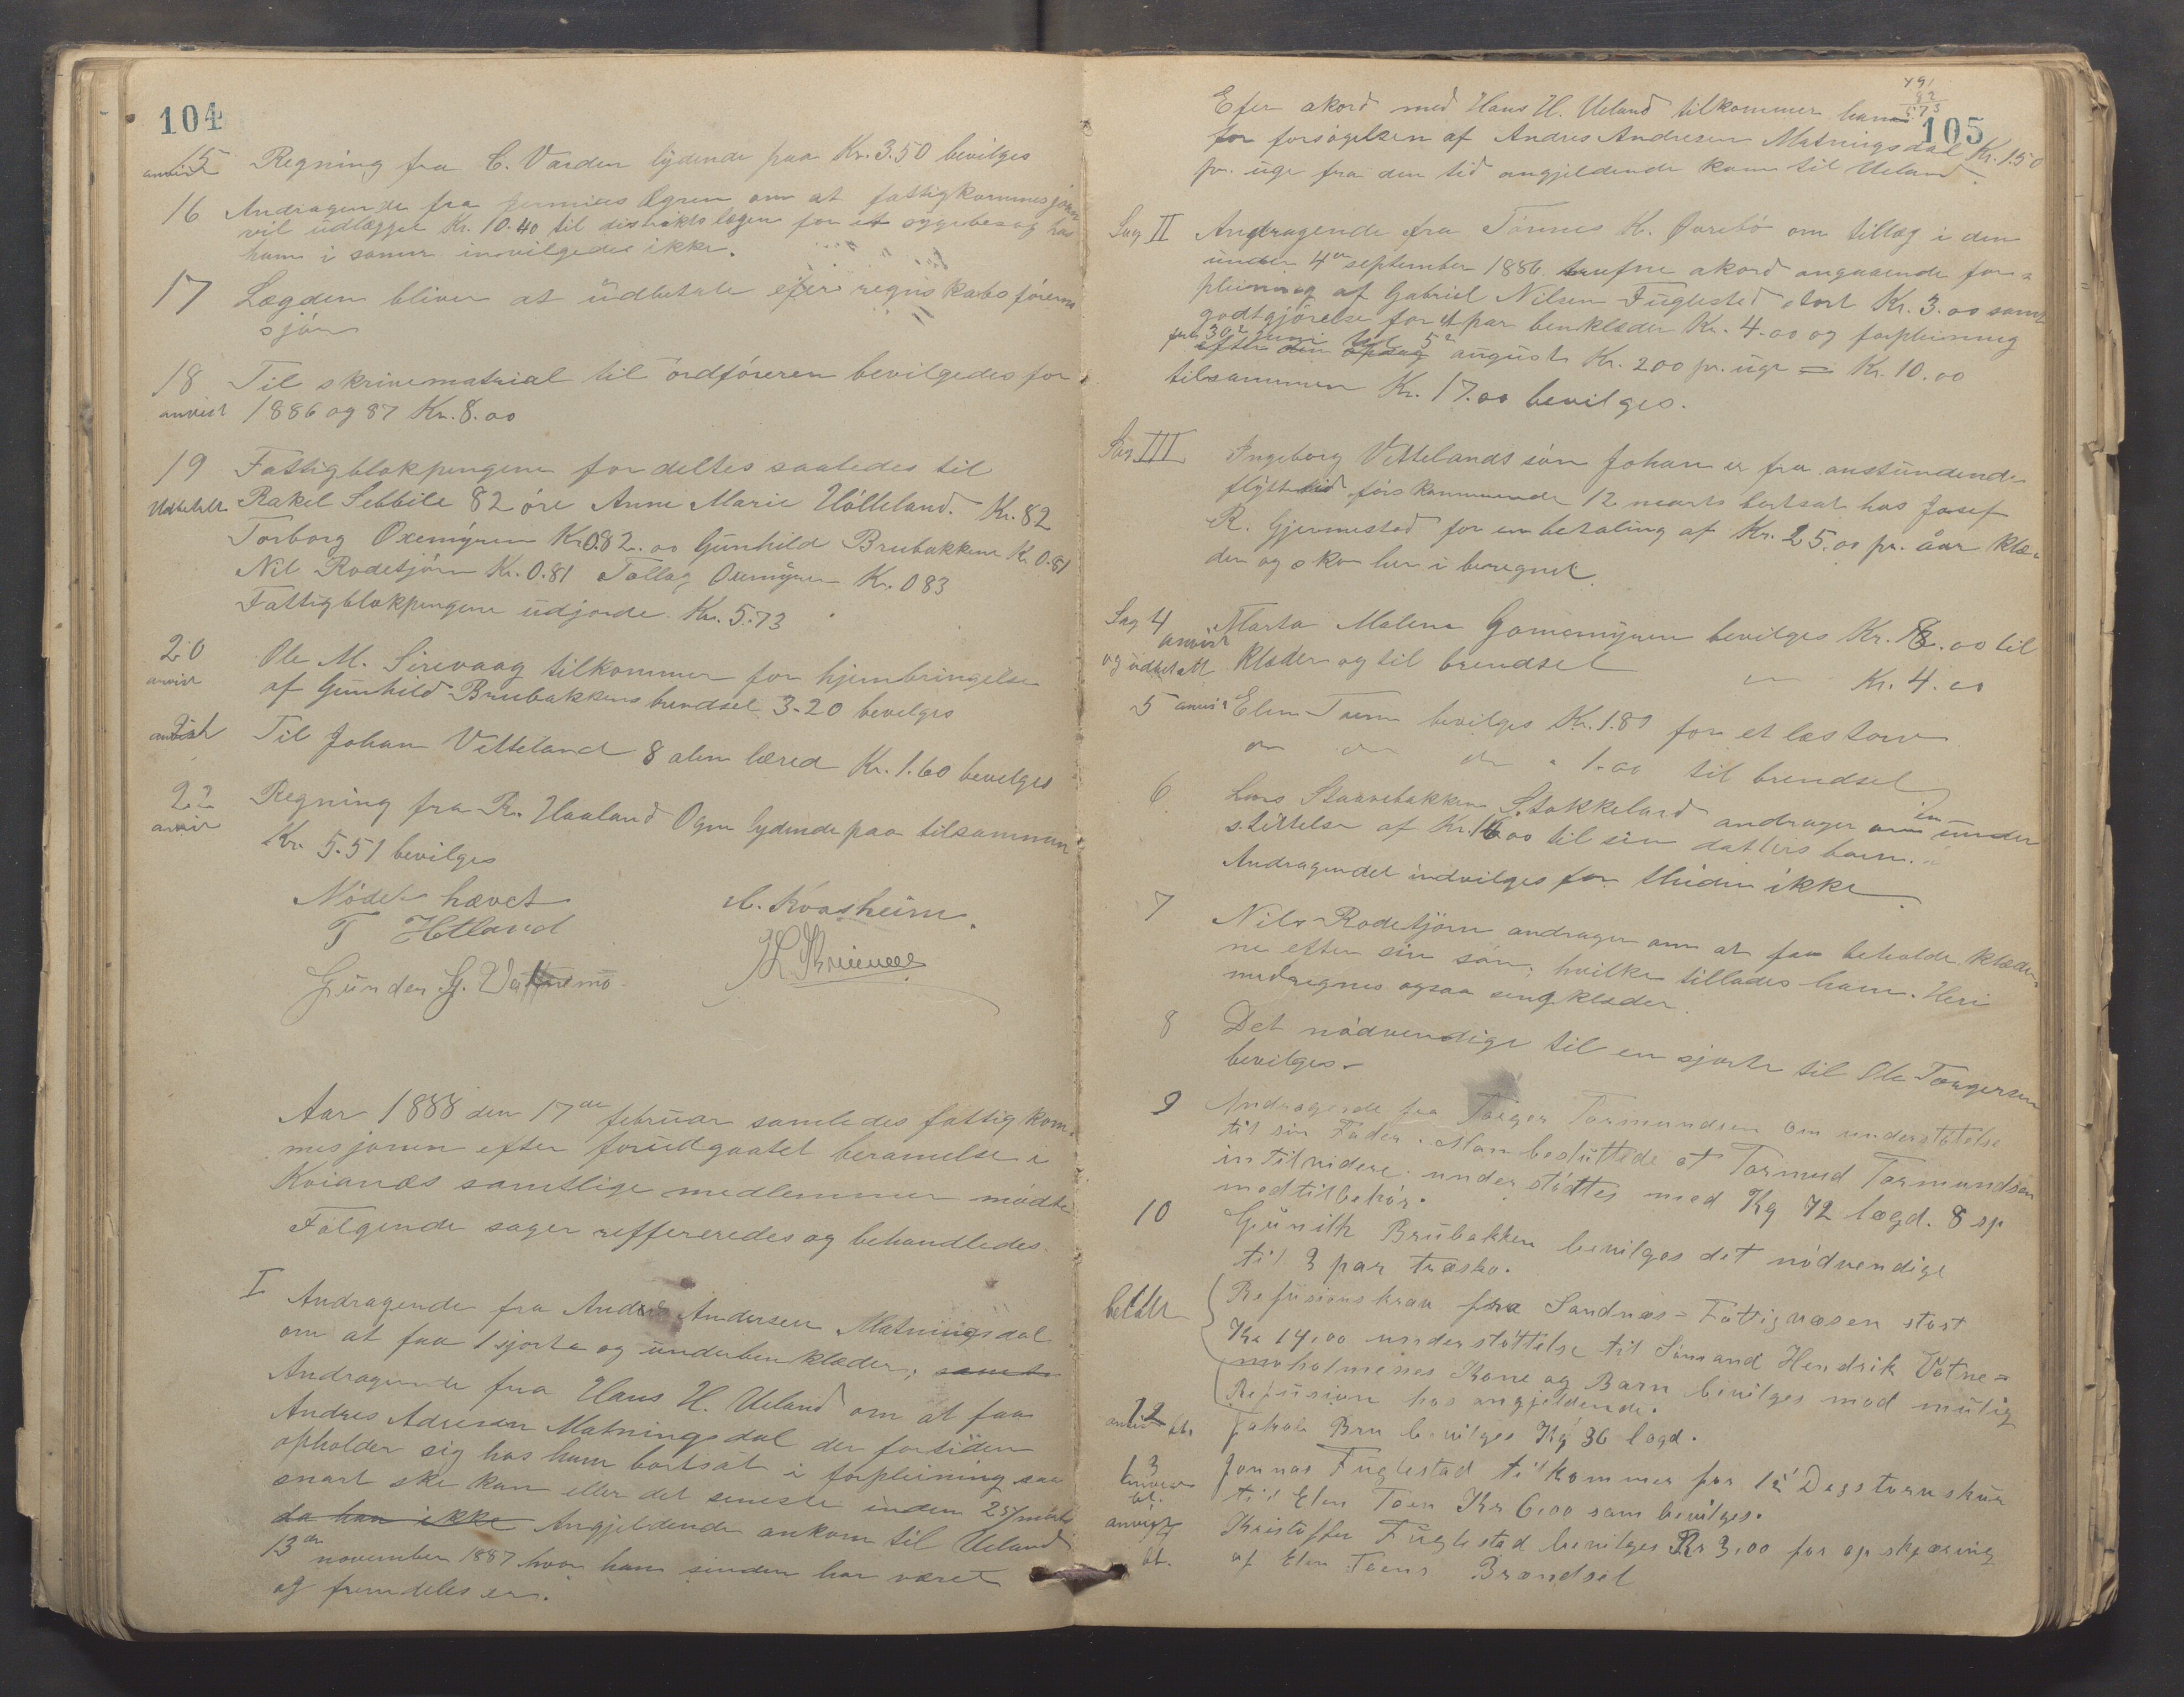 104
15 Regning fra C. Varden lydende paa Kr. 3.50 bevilges
anvist
16 Andragende fra Ogren om at fattigkommesjonen
vil udlægge Kr. 10.40 til distriktslægen for et sygebesøg hos
ham i sommer invilgedes ikke.
17 Lægden bliver at udbetale efter regnskabsførerens
sjön
18 Til skrivematrial til ordföreren bevilgedes for
anvist 1886 og 87 Kr. 8.00
19 Fattigblokpengene fordeltes saaledes til
Udbetalt Rakel Sebbile 82 öre Anne Marie Hölleland. Kr. 82
Torborg Oxemyren Kr 0.82.00 Gunhild Brubakken Kr 0.81
Nil Rodetjörn Kr. 0.81 Tollag Oxemyren Kr. 083
Fattigblokpengene udjorde Kr. 5.73
20 Ole M. Sirevaag tilkommer for hjembringelse
anvist af Gunhild Brubakkens brendsel 3.20 bevilges
21 Til Johan Vetteland 8 alen lærred Kr. 1.60 bevilges
anvist
22 Regning fra R. Haaland Ogne lydende paa tilsammen
anvist
Kr. 5.51 bevilges
Mödet hævet
T Hetland
Gunder G. Vatnemo
Kvasheim
Aar 1888 den 17de februar samledes fattigkom-
mesjonen efter forudgaatet berammelse i
Kvianæs samtlige medlemmer mödte
Fölgende sager reffereredes og behandledes.
I Andragende fra Andrés Andersen Matningsdal
om at faa 1 sjorte og underbenklæder, samt
Andragende fra Haus H. Ueland om at faa
Andres Adresen Matningsdal der fortiden
opholder sig hos ham bortsat i forpleining saa
snart ske kan eller det seneste inden 25/marts
da han ikke Angjeldende ankom til Ueland
13de november 1887 hvor han sinden har været
og fremdeles er.
491
82
573
105
Efer akord med Haus H. Ueland tilkommer ham
for forsögelsen af Andres Andresen Matningsdal Kr. 1.50
pr. uge fra den tid angjeldende kom til Ueland.
Sag II Andragende fra Tönnes K. Övrebö om tillæg i den
under 4de september 1886 trufne akord angaaende for-
pleining af Gabriel Nilsen Fuglested stort Kr. 3.00 samt
godtgjörelse for 1 par benklæder Kr. 4.00 og forpleining
fra 30te juni til 5te
efter den august Kr. 200 pr. uge = Kr. 10.00
tilsammen Kr. 17.00 bevilges.
Sag III Ingeborg Vettelands sön Johan er fra anstundende
flyttetid förskommende 12 marts bortsat hos Josef
R. Gjermestad for en betaling af Kr. 25.00 pr. åar klæ-
der og sko her i beregnet.
Sag 4 Marta Malene Gomemyren bevilges Kr. 8.00 til
anvist
og udbetalt klæder og til brendsel Kr. 4.00
5 anvist Elen Tuen bevilges Kr. 1.89 for et læs torv
1.00 til brendsel
6 Lars Staavebakken Stokkeland andrager om en under
stöttelse af Kr. 16.00 til sin datters barn.
Andragendet indvilges for tiden ikke.
7 Nils Rodetjörn andrager om at faa beholde klæder-
ne efter sin sön, hvilke tillades ham. Heri
medregnes ogsaa sengklæder.
8 Det nödvendige til en sjorte til Ole Torgersen
bevilges.
9 Andragende fra Torger Tormundsen om understötelse
til sin Fader. Man besluttede at Tormud Tormundsen
intilvidere understöttes med Kg 72 lægd. 8 sp
med tilbehör.
10 Gunild Brubakken bevilges det nödvendige
til 3 par træsko.
betalt Refusionskrav fra Sandnæs-Fattigvæsen stort
Kr 14,00 understöttelse til Sömand Hendrik Votne-
moholmenes Kone og Barn bevilges mod mulig
Refusion hos angjeldende.
12 Jakob Bru bevilges Kg 36 lægd.
anvist bt.
13 Jonnas Fuglestad tilkommer for 1½ Dags torvskur
anvist
bt. til Elen Toen Kr 6,00 som bevilges.
anvist Kristoffer Fuglestad bevilges Kr 3,00 for opskjæring
bt. af Elen Toens Brændsel